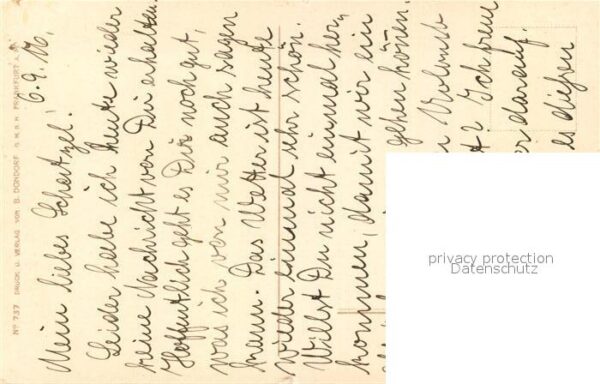 6.9.16.
Mein liebes Schatzel!
Leider habe ich heute wieder
keine Nachricht von Dir erhalten.
Hoffentlich geht es Dir noch gut,
was ich von mir auch sagen
kann. Das Wetter ist heute
wieder einmal sehr schön.
Willst Du nicht einmal her-
kommen, damit wir ein
gehen können.
Schreibe
darauf.
es diesen
No 737 DRUCK U. VERLAG VON B. DONDORF G.M.B.H. FRANKFURT A. M.
privacy protection
Datenschutz